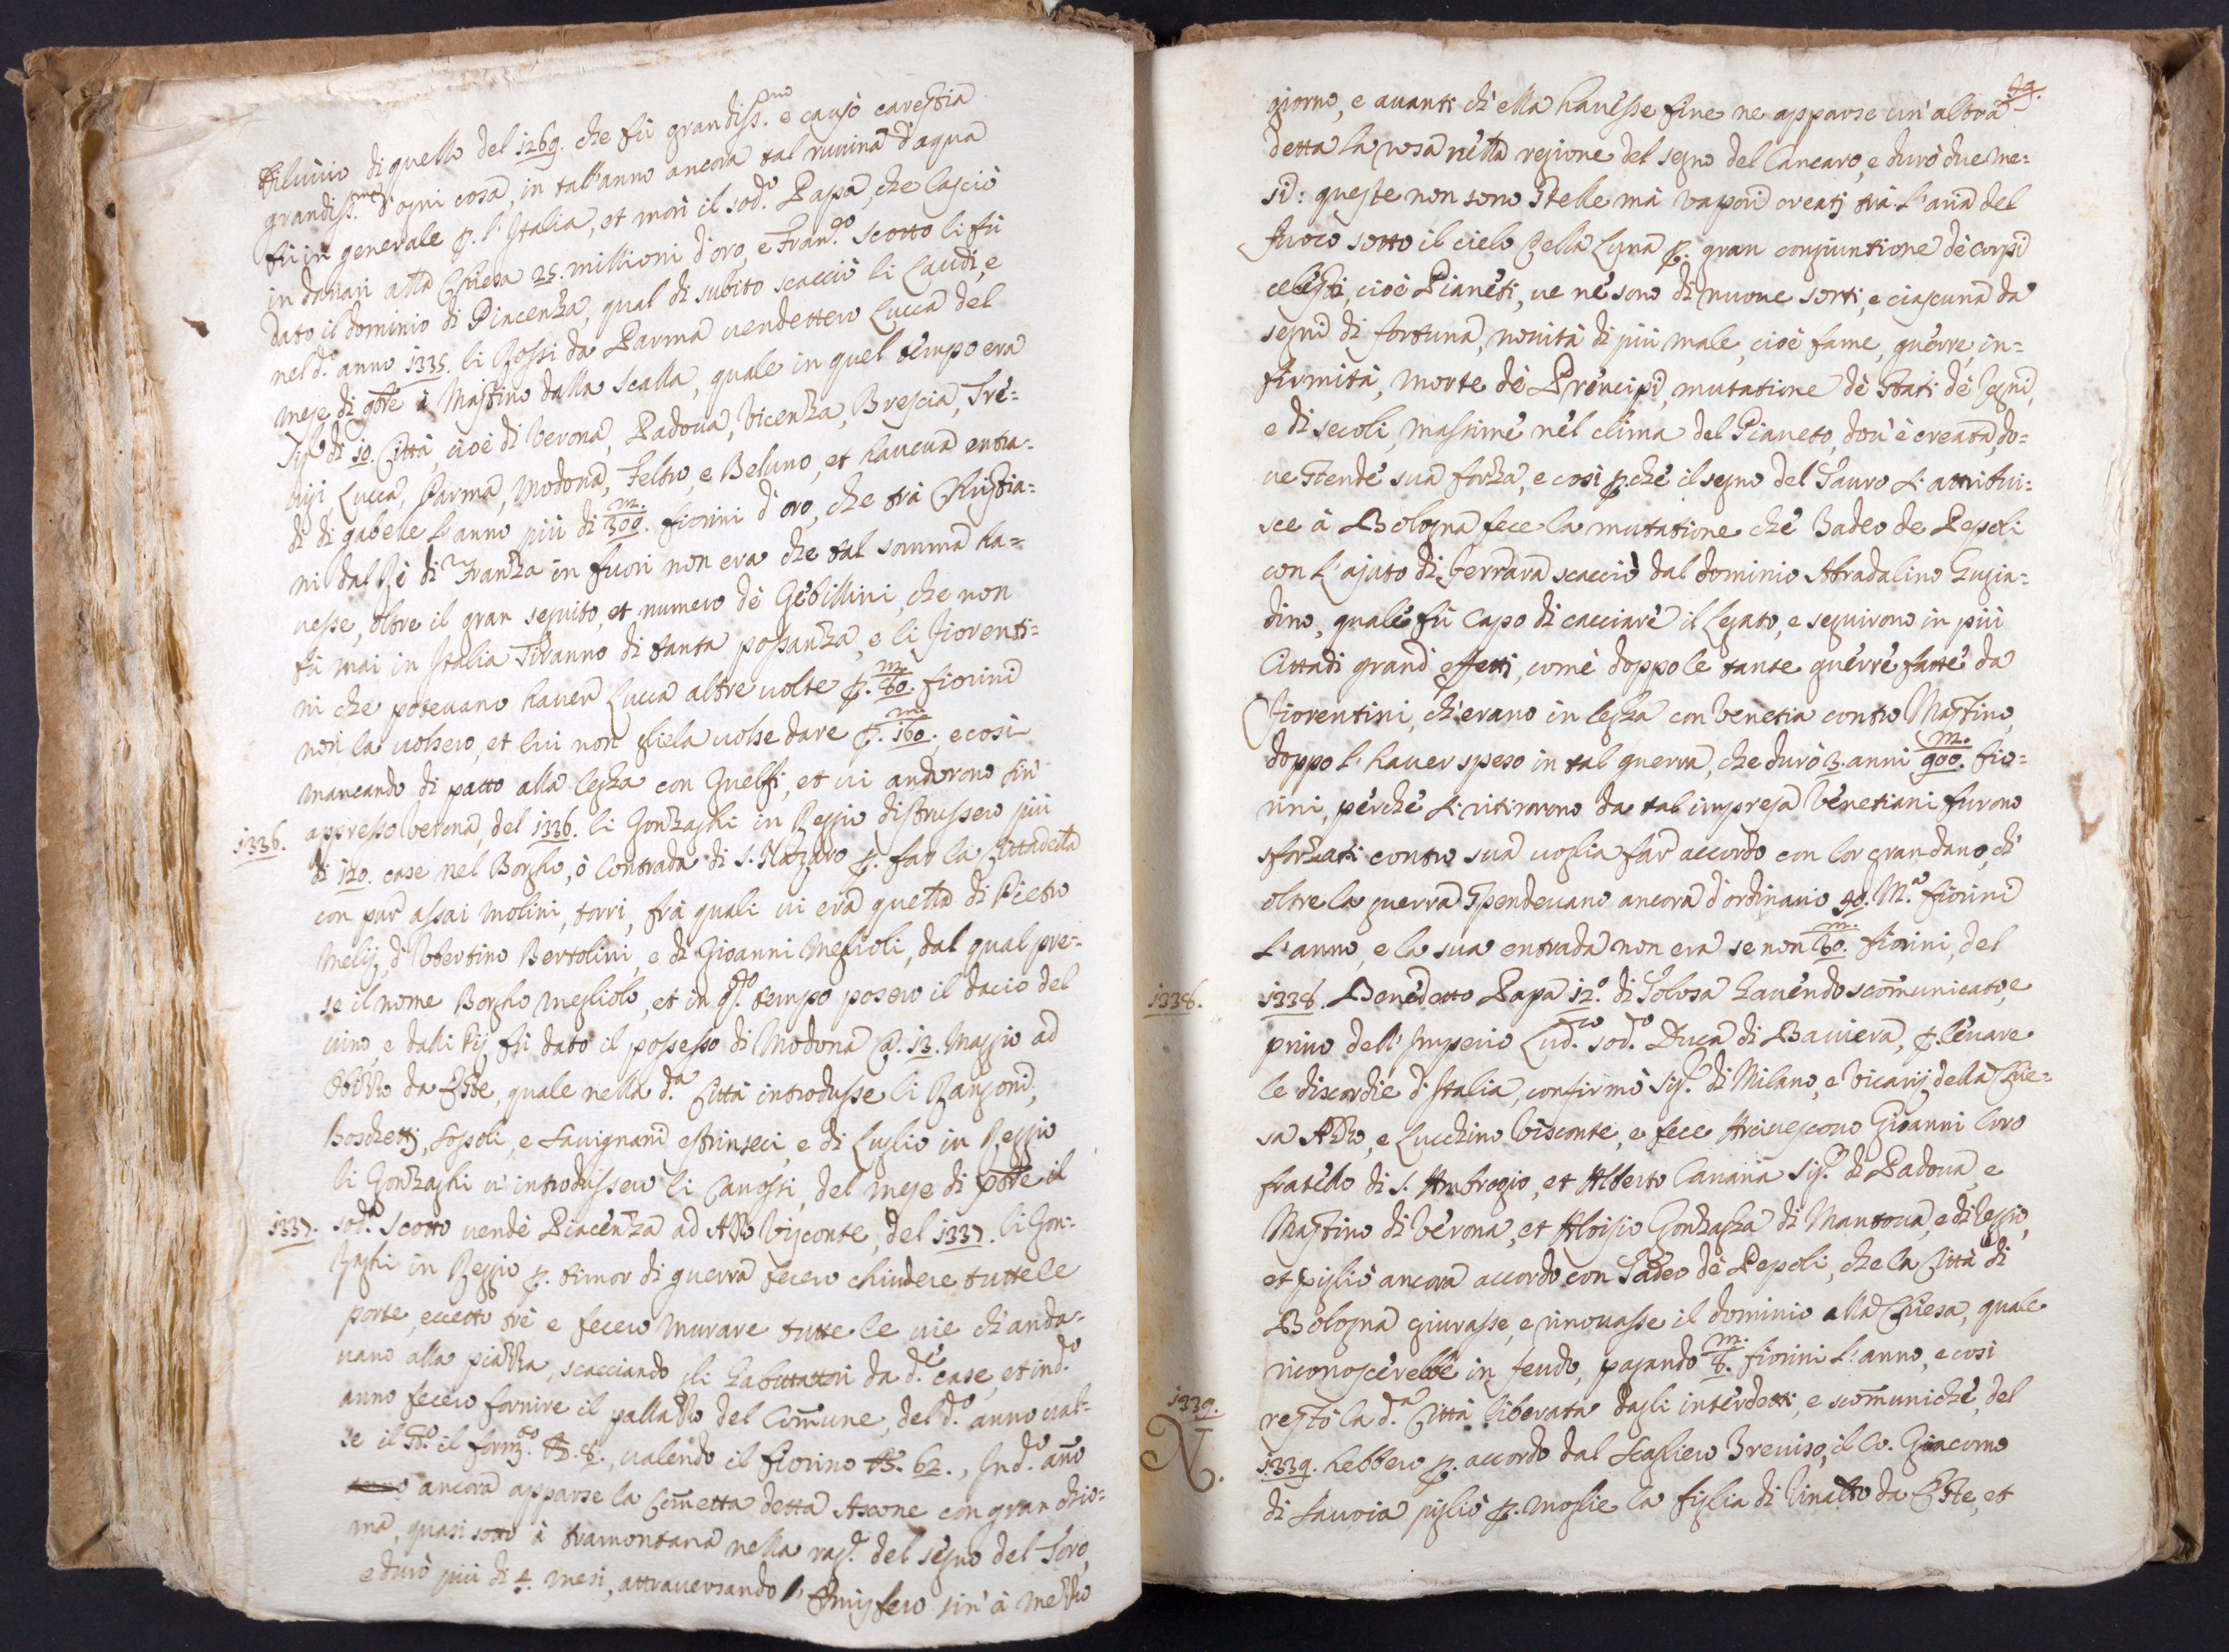 diluvio di quello del 1269. che fù grandiss.mo e causò carestia
grandiss.ma d'ogni cosa, in tall'anno ancora tal ruvina d'aqua
fù in generale p. l'Italia, et morì il sod.o Papa, che lasciò
in danari alla Chiesa 25. millioni d'oro, e Fran.co Scotto li fù
dato il dominio di Piacenza, qual di subito scacciò li Laudi, e
nel d.o anno 1335. li Rossi da Parma vendettero Lucca del
mese di 9bre à Mastino dalla Scalla, quale in quel tempo era
Sig.r di 10. Città, cioè di Verona, Padova, Vicenza, Brescia, Tre=
vigi, Lucca, Parma, Modona, Feltro, e Beluno, et haveva entra=
di di gabelle l'anno più di 300.m. fiorini d'oro, che trà Christia=
ni dal Rè di Franza in fuori non era che tal somma ha=
vesse, oltre il gran seguito, et numero dè Gebillini, che non
fù mai in Italia Tiranno di tanta possanza, e li Fiorenti=
ni che potevano haver Lucca altre volte p. 80.m. fiorini
non la volsero, et lui non gliela volse dare p. 160.m., e così
mancando di patto alla legha con Guelfi, et vi andorono sin'
1336. appresso Verona, del 1336. li Gonzaghi in Reggio distrussero più
di 120. case nel Borgho, ò Contrada di S. Nazaro p. far la Cittadella
con pur assai molini, torri, frà quali vi era quella di Pietro
Melij, d'Ubertino Bertolini, e di Gioanni Meglioli, dal qual pre=
se il nome Borgho megliolo, et in q.sto tempo posero il dacio del
vino, e dalli Pij fù dato il possesso di Modona @. 13. Maggio ad
Obizzo da Este, quale nella d.a Città introdusse li Rangoni,
Boschetti, , e Savignani estrinseci, e di Luglio in Reggio
li Gonzaghi v'introdussero li Canossi, del mese di xbre il
1337. sod.o Scotto vendè Piacenza ad Azzo Visconte, del 1337. li Gon=
zaghi in Reggio p. timor di guerra fecero chiudere tutte le
porte, eccetto trè e fecero murare tutte le vie ch'anda=
vano alla piazza, scacciando gli habitattori da d.e case, et in d.o
anno fecero fornire il pallazzo del Comune, del d.o anno val=
se il st.o il form.to £. 8., valendo il fiorino £. 62., In d.o año
ancora apparse la Cometta detta Ascone con gran chio=
ma, quasi sotto à tramontana nella reg.e del segno del Toro,
e durò più di 4. mesi, attraversando l'Emisfero sin' à mezzo
69.
giorno, e avanti ch'ella havesse fine ne apparse un'altra
detta la rosa nella regione del segno del Cancaro, e durò due me=
si: queste non sono stelle mà vapori creati trà l'aria del
fuoco sotto il cielo della Luna p. gran congiuntione dè corpi
celesti, cioè Pianeti, ve nè sono di nuove sorti, e ciascuna da
segni di fortuna, novità di più male, cioè fame, guerre, in=
firmità, morte dè Prencipi, mutatione dè stati dè Regni,
e di secoli, massime nel clima del Pianeto, dov'è creata, do=
ve stende sua forza, e così p.chè il segno del Tauro s'attribui=
sce à Bologna fece la mutatione che Tadeo de Pepoli
con l'ajuto di Ferrara scacciò dal dominio Abradalino Gugia=
dino, quale fù capo di cacciare il Legato, e seguirono in più
Cittadi grandi effetti, come doppo le tante guerre fatte da
Fiorentini, ch'erano in legha con Venetia contro Mastino,
doppo l'haver speso in tal guerra, che durò 3. anni 900.m. fio=
rini, perchè si ritirorono da tal impresa Venetiani furono
sforzati contro sua voglia far accordo con lor gran dano, ch'
oltre la guerra spendevano ancora d'ordinario 40. M.a fiorini
l'anno, e la sua entrada non era se non 60.m. fiorini, del
1338. 1338. Benedetto Papa 12.o di Tolosa havendo scomunicato, e
privo dell'Imperio Lud.co sod.o Duca di Baviera, p. levare
le discordie d'Italia, confirmò Sig.ri di Milano, e Vicarij della Chie=
sa Azzo, e Lucchino Visconte, e fece Arcivescovo Gioanni loro
fratello di S. Ambrogio, et Alberto Canana Sig.r di Padova, e
Mastino di Verona, et Aloisio Gonzagha di Mantova, e di Reggio,
et pigliò ancora accordo con Tadeo dè Pepoli, che la Città di
Bologna giurasse, e rinovasse il dominio alla Chiesa, quale
riconoscerebbe in feudo, pagando 8.m. fiorini l'anno, e così
1339. restò la d.a Città liberata dagli interdetti, e scomuniche, del
N. 1339. hebbero p. accordo dal Scagliero Treviso, il Co. Giacomo
di Savoia pigliò p. moglie la figlia di Rinaldo da Este, et